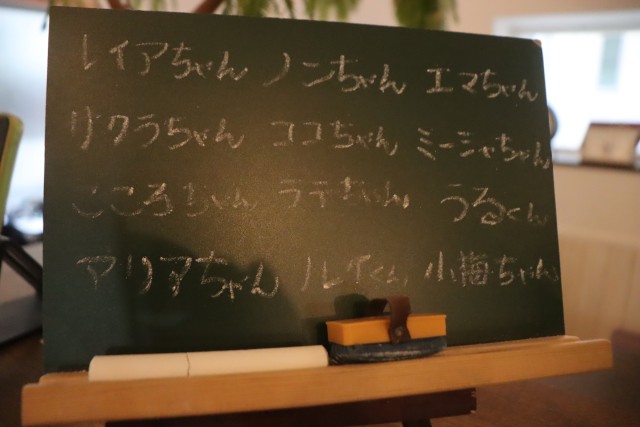 レイアちゃん ノンちゃん エマちゃん
サクラちゃん ココちゃん ミーシャちゃん
こころちゃん ララちゃん うるくん
アリアちゃん ルイくん 小梅ちゃん